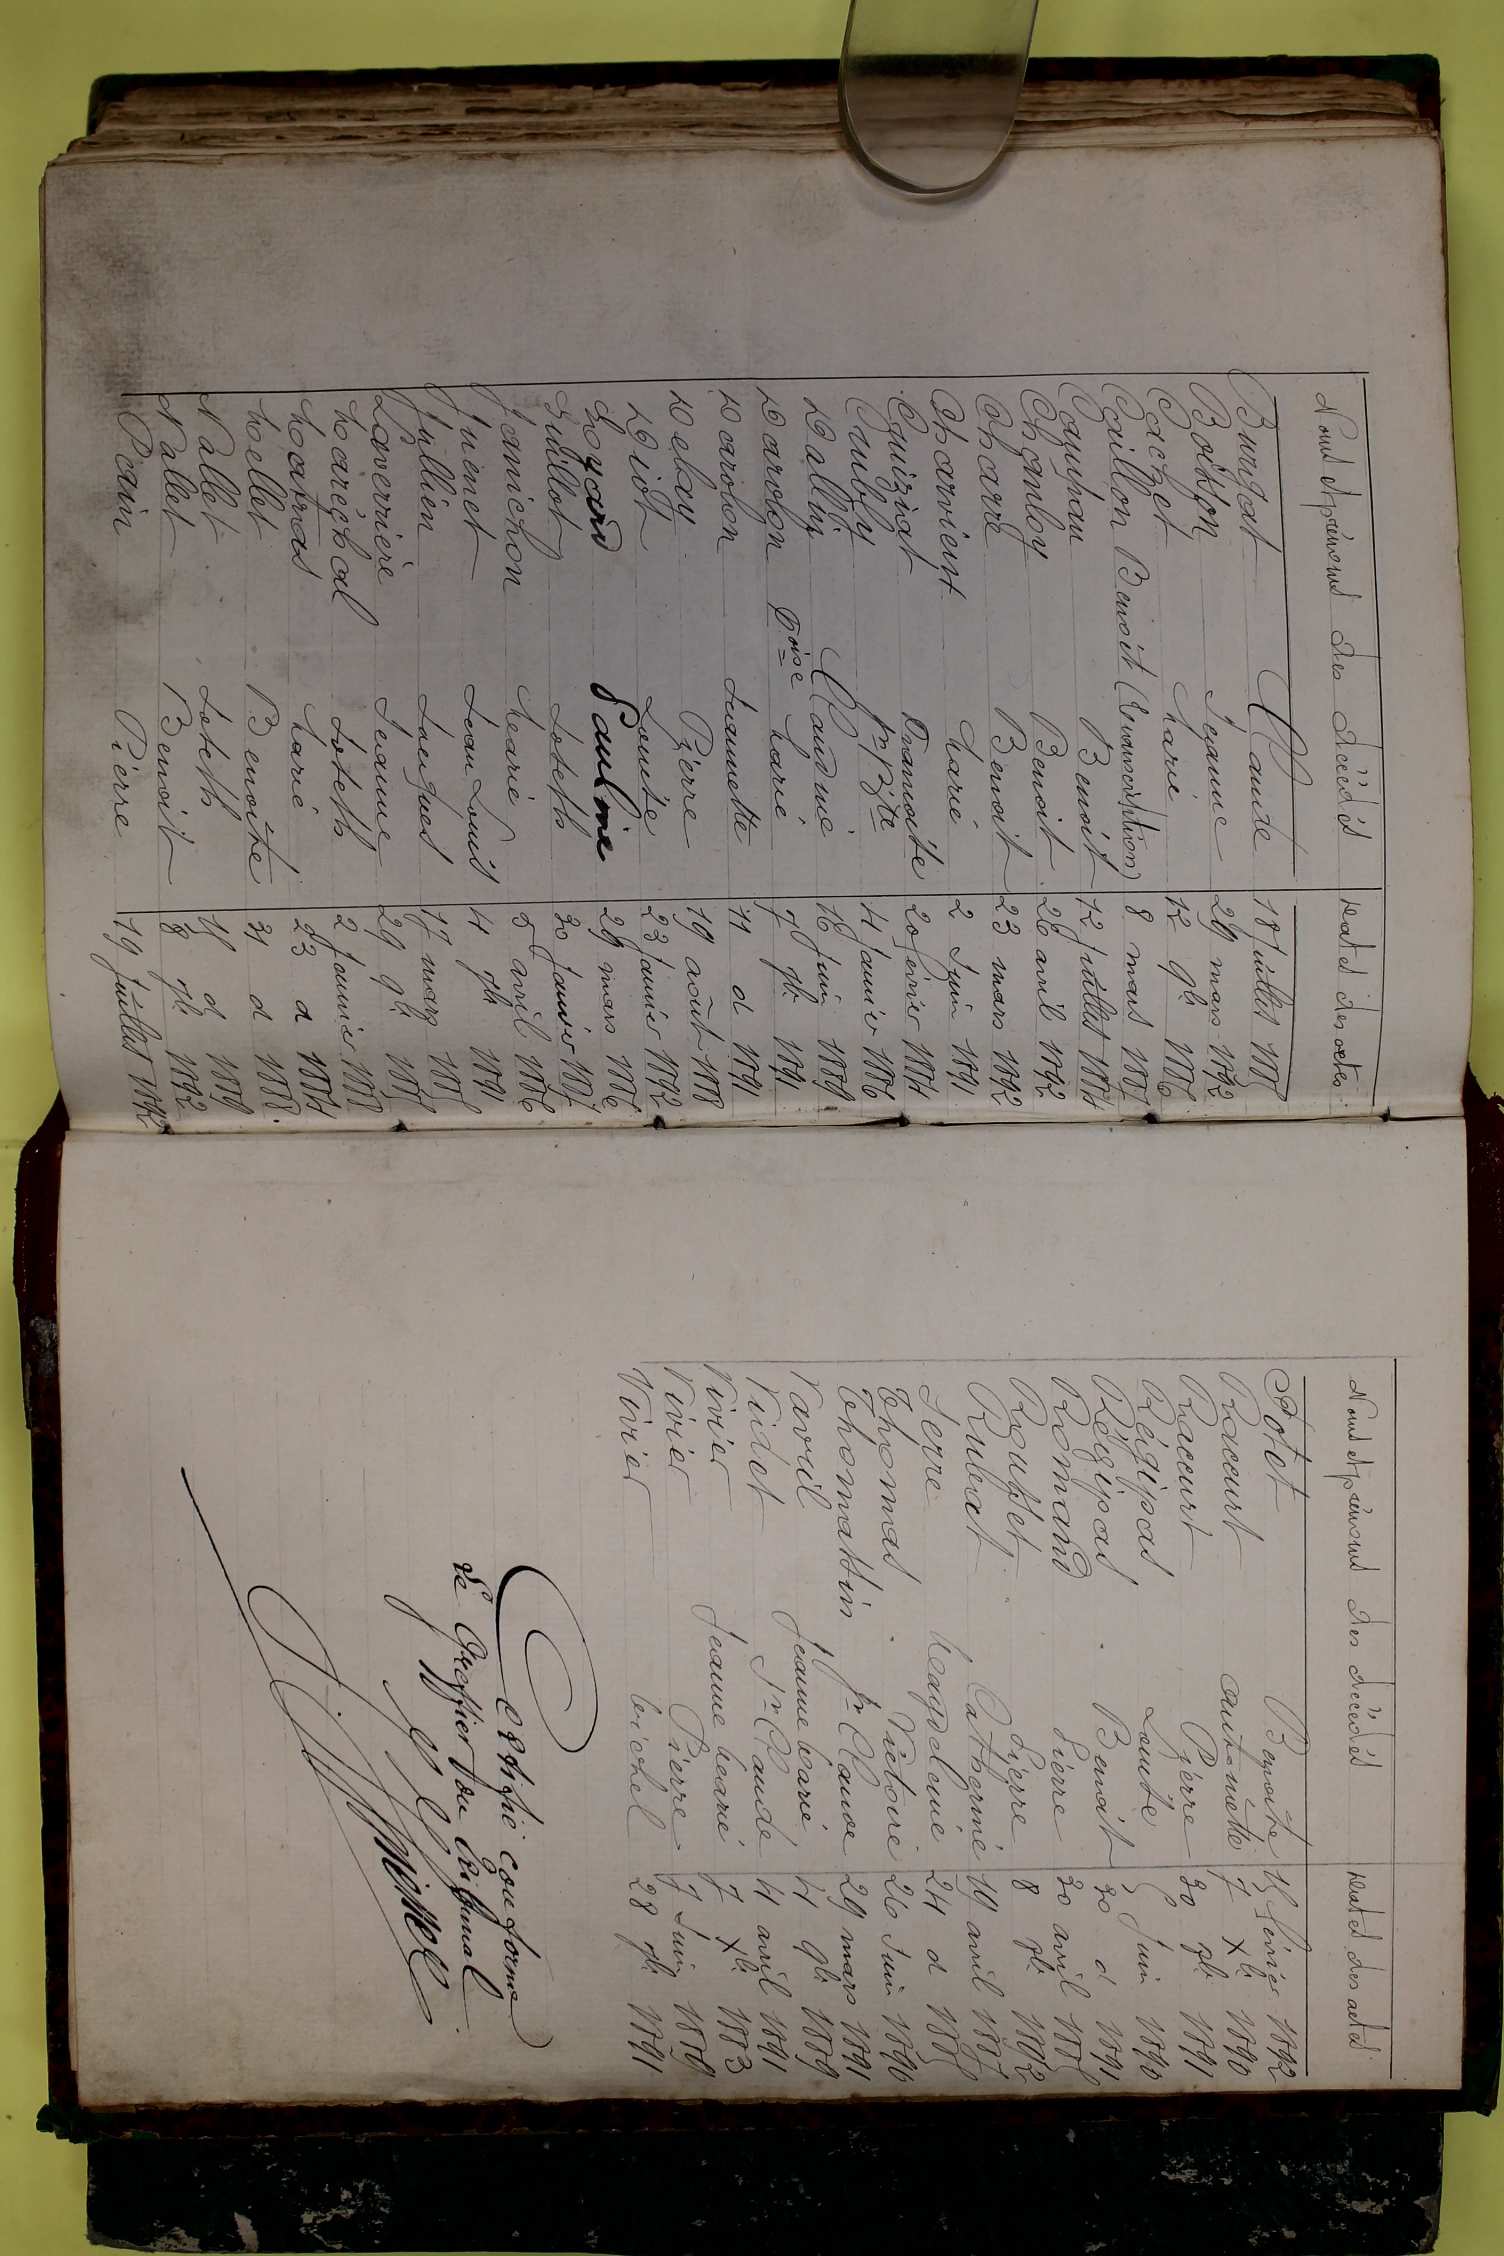 Noms et prénoms des décédés Dates des actes
Burgat Claude 18 Juillet 1885
Bochon Jeanne 29 mars 1892
Cachet Marie 12 9bre 1886
Caillon Benoit (Transcription) 8 mars 1887
Caupau Benoit 12 Juillet 1884
Chamboy Benoit 26 avril 1892
Charre Benoit 23 mars 1892
Charvient Marie 2 Juin 1891
Cuiziat Francoise 20 février 1884
Curuby Jn Bte 4 Janvier 1886
Dallin Claudine 16 Juin 1889
Darbon Foise Marie 7 9bre 1891
Darbon Jeannette 11 d 1891
Delay Pierre 19 août 1888
Diot Louise 23 Janvier 1892
Goyard Pauline 29 mars 1886
Guillot Joseph 30 Janvier 1887
Janichon Marie 5 avril 1886
Juenet Jean Louis 4 9bre 1891
Jullien Jacques 17 mars 1885
Laverrière Jeanne 29 9bre 1885
Maréchal Joseph 2 Janvier 1888
Matras Marie 23 d 1884
Mollet Benoîte 31 d 1888
Nallet Joseph 15 d 1889
Nallet Benoit 8 9bre 1892
Pain Pierre 19 Juillet 1892
Noms et prénoms des décédés Dates des actes
Potet Benoîte 15 février 1892
Raccurt Antoinette 7 Xbre 1890
Raccurt Pierre 30 9bre 1891
Régipas Louise 5 Juin 1890
Régipas Benoit 30 d 1891
Romand Pierre 30 avril 1885
Rousset Pierre 8 9bre 1892
Rubat Catherine 19 avril 1887
Serre Magdeleine 24 d 1885
Thomas Victoire 26 Juin 1890
Thomattin Jn Claude 29 mars 1891
Vavril Jeanne Marie 4 9bre 1889
Videt Jn Claude 4 avril 1891
Vivier Jeanne Marie 7 Xbre 1883
Vivier Pierre 7 Juin 1889
Vivier Michel 28 9bre 1891
Certifié conforme
Le Greffier du Tribunal